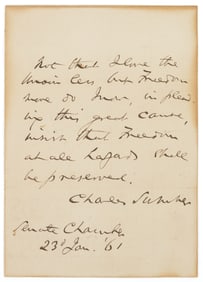 Not that I love the
Union less but Freedom
more do I now, in plead
ing this great cause,
insist that Freedom
at all hazards shall
be preserved.
Charles Sumner
Senate Chamber
23d Jan. '61